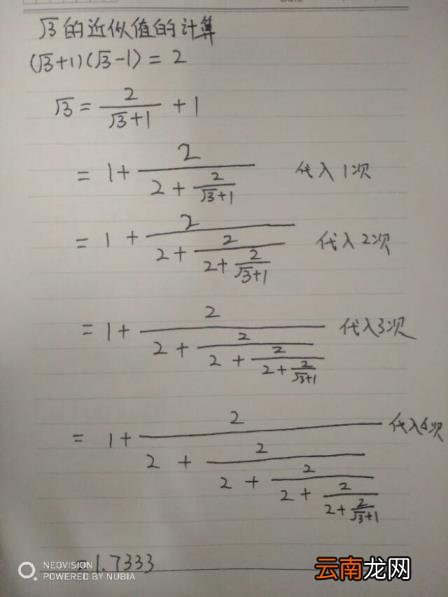 √3的近似值的计算
(√3+1)(√3-1)=2
√3 = 2/(√3+1) + 1
= 1+ 2/(2+ 2/(√3+1)) 代入1次
= 1+ 2/(2+ 2/(2+ 2/(√3+1))) 代入2次
= 1+ 2/(2+ 2/(2+ 2/(2+ 2/(√3+1)))) 代入3次
= 1+ 2/(2+ 2/(2+ 2/(2+ 2/(2+ 2/(√3+1))))) 代入4次
1.7333
NEOVISION
POWERED BY NUBIA
云南龙网